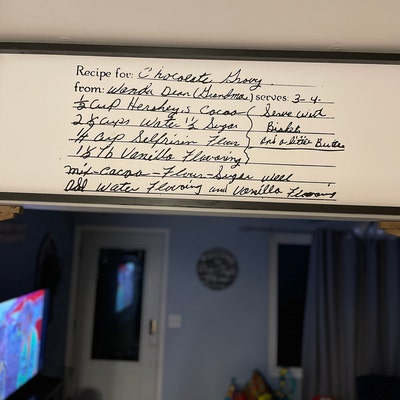 Recipe for: Chocolate Gravy
from: Wanda Dean (Grandma) serves: 3-4
Cup Hershey's Cocoa Serve with
2 Cups Water 1/2 Sugar
1/4 Cup Selfrisin Flour and a little Butter
Vanilla Flavoring
mix-Cocoa-Flour-Sugar well
add Water Flavoring and Vanilla